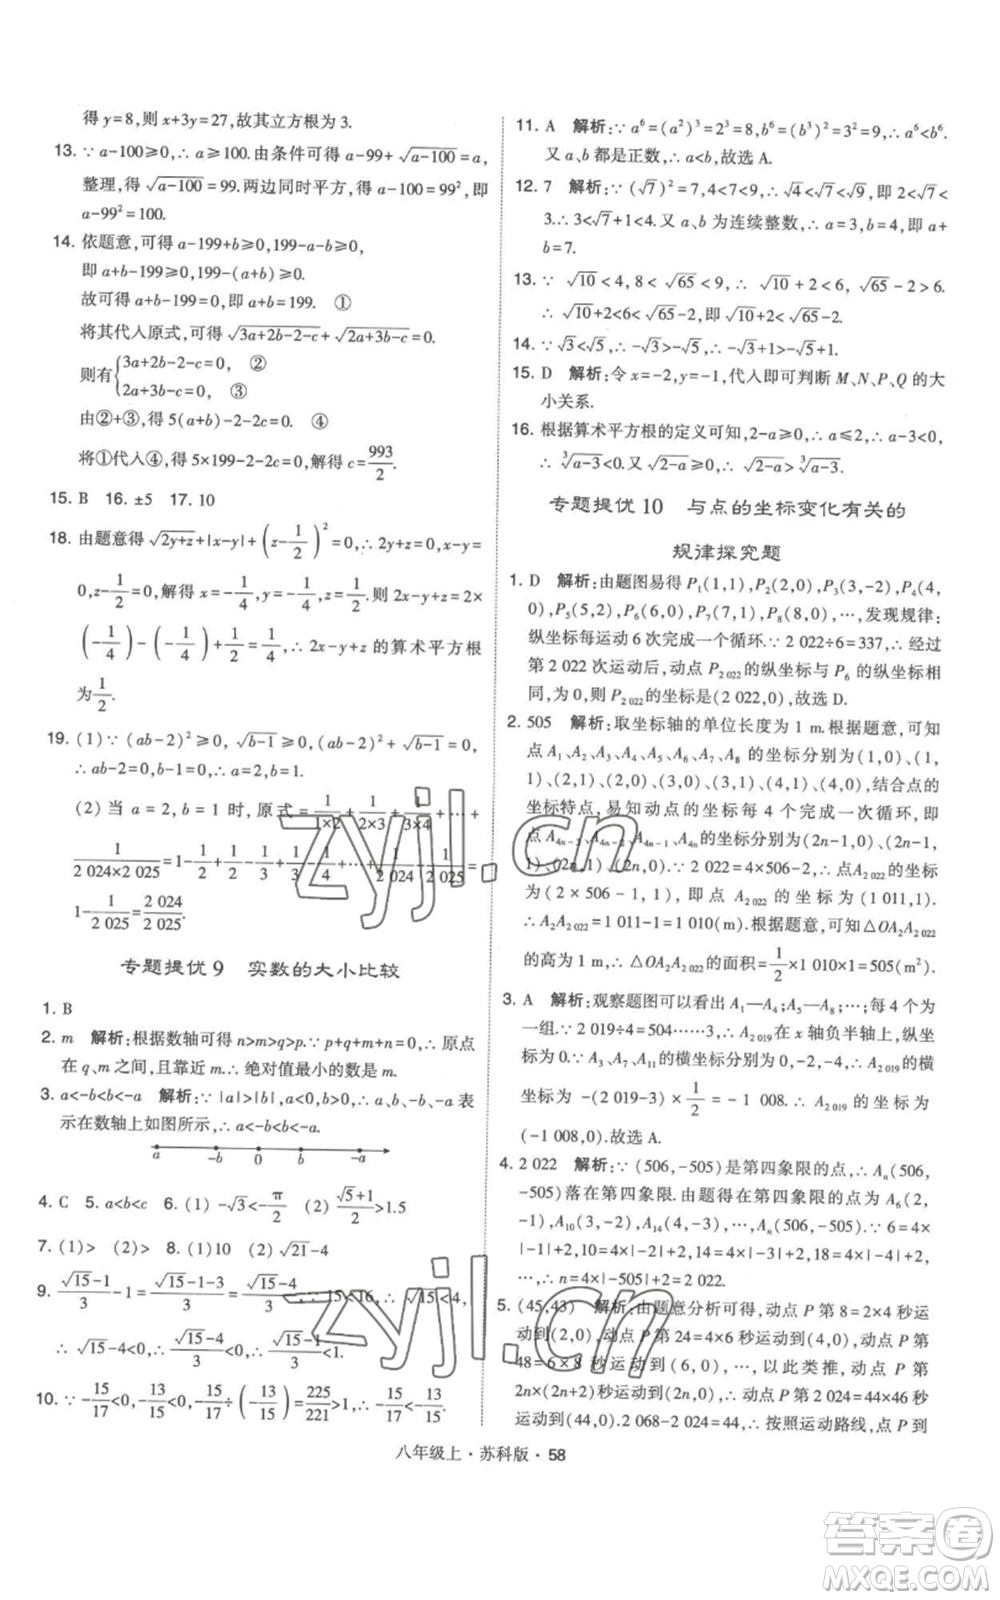 得 y=8,则 x+3y=27,故其立方根为 3.
13. ∵ a-100≥0,∴ a≥100.由条件可得 a-99+√(a-100)=a,
整理,得√(a-100)=99.两边同时平方,得 a-100=99²,即
a-99²=100.
14. 依题意,可得 a-199+b≥0,199-a-b≥0,
即 a+b-199≥0,199-(a+b)≥0,
故可得 a+b-199=0,即 a+b=199. ①
将其代入原式,可得√(3a+2b-2-c)+√(2a+3b-c)=0.
则有{3a+2b-2-c=0, ②
2a+3b-c=0. ③
由②+③,得 5(a+b)-2-2c=0. ④
将①代入④,得 5×199-2-2c=0,解得 c=993/2.
15. B 16. ±5 17. 10
18. 由题意得√(2y+z)+|x-y|+(z-1/2)²=0,∴ 2y+z=0,x-y=
0,z-1/2=0,解得 x=-1/4,y=-1/4,z=1/2.则 2x-y+z=2×
(-1/4)-(-1/4)+1/2=1/4.∴ 2x-y+z 的算术平方根
为1/2.
19. (1)∵ (ab-2)²≥0,√(b-1)≥0,(ab-2)²+√(b-1)=0,
∴ ab-2=0,b-1=0,∴ a=2,b=1.
(2) 当 a=2,b=1 时,原式=1/(1×2)+1/(2×3)+1/(3×4)+…+
1/(2 024×2 025)=1-1/2+1/2-1/3+1/3-1/4+…+1/2 024-1/2 025=
1-1/2 025=2 024/2 025.
专题提优 9 实数的大小比较
1. B
2. m 解析:根据数轴可得 n>m>q>p.∵ p+q+m+n=0,∴ 原点
在 q、m 之间,∴ 绝对值最小的数是 m.
3. a<-b<b<-a 解析:∵ |a|>|b|,a<0,b>0,∴ a、b、-b、-a 表
示在数轴上如图所示,∴ a<-b<b<-a.
a -b 0 b -a
4. C 5. a<b<c 6. (1) -√3<-π/2 (2) (√5+1)/2>1.5
7. (1)> (2)> 8. (1)√10 (2)√21-4
9. (√15-1)/3-1=(√15-1-3)/3=(√15-4)/3.∵ 15<16,∴ √15<4,
∴ √15-4<0,∴ (√15-4)/3<0,∴ (√15-1)/3<1.
10. ∵ -15/17<0,-13/15<0,-15/17÷(-13/15)=225/221>1,∴ -15/17<-13/15.
11. A 解析:∵ a⁶=(a²)³=2³=8,b⁶=(b³)²=3²=9,∴ a⁶<b⁶.
又∵ a、b 都是正数,∴ a<b,故选 A.
12. 7 解析:∵ (√7)²=7,4<7<9,∴ √4<√7<√9,即 2<√7<
3.∴ 3<√7+1<4.又∵ a、b 为连续整数,∴ a=3,b=4,即 a+
b=7.
13. ∵ √10<4,8<√65<9,∴ √10+2<6,√65-2>6.
∴ √10+2<6<√65-2,∴ √10+2<√65-2.
14. ∵ √3<√5,∴ -√3>-√5,∴ 1-√3>1-√5.
15. D 解析:令 x=-2,y=-1,代入即可判断 M、N、P、Q 的大
小关系.
16. 根据算术平方根的定义可知,2-a≥0,∴ a≤2,∴ a-3<0,
∴ ∛(a-3)<0.∵ √(2-a)≥0,∴ √(2-a)>∛(a-3).
专题提优 10 与点的坐标变化有关的
规律探究题
1. D 解析:由题图易得 P₁(1,1),P₂(2,0),P₃(3,-2),P₄(4,
0),P₅(5,2),P₆(6,0),P₇(7,1),P₈(8,0),…,发现规律:
纵坐标每运动 6 次完成一个循环.∵ 2 022÷6=337,∴ 经过
第 2 022 次运动后,动点 P₂ ₀₂₂的纵坐标与 P₆ 的纵坐标相
同,为 0,则 P₂ ₀₂₂的坐标是(2 022,0),故选 D.
2. 505 解析:取坐标轴的单位长度为 1 m.根据题意,可知
点 A₁、A₂、A₃、A₄、… 的坐标分别为(1,0)、(1,
1)、(2,1)、(2,0)、(3,0)、(3,1)、(4,1)、(4,0),结合点的
坐标特点,易知动点的坐标每 4 个完成一次循环,即
点 A₄ₙ₋₃、A₄ₙ₋₂、A₄ₙ₋₁、A₄ₙ的坐标分别为(2n-1,0)、(2n-1,
1)、(2n,1)、(2n,0).∵ 2 022=4×506-2,∴ 点 A₂ ₀₂₂ 的坐
标为(2×506-1,1),即点 A₂ ₀₂₂ 的坐标为(1 011,1),
∴ A₂A₂ ₀₂₂=1 011-1=1 010(m).根据题意,可知△OA₂A₂ ₀₂₂
的高为 1 m,∴ △OA₂A₂ ₀₂₂的面积=1/2×1 010×1=505(m²).
3. A 解析:观察题图可以看出 A₁—A₄;A₅—A₈;…;每 4 个为
一组.∵ 2 019÷4=504……3,∴ A₂ ₀₁₉在 x 轴负半轴上,纵坐
标为 0.∵ A₃、A₇、A₁₁的横坐标分别为 0,-2,-4,∴ A₂ ₀₁₉的横
坐标为 -(2 019-3)×1/2=-1 008.∴ A₂ ₀₁₉ 的坐标为
(-1 008,0).故选 A.
4. 2 022 解析:∵ (506,-505)是第四象限的点,∴ Aₙ(506,
-505)在第四象限.由题得在第四象限的点为 A₆(2,
-1),A₁₀(3,-2),A₁₄(4,-3),…,Aₙ(506,-505).∵ 6=4×
|-1|+2,10=4×|-2|+2,14=4×|-3|+2,
∴ n=4×|-505|+2=2 022.
5. (45,43) 解析:由题意分析可得,动点 P 第 8=2×4 秒运
动到(2,0),动点 P 第 24=4×6 秒运动到(4,0),动点 P 第
48=6×8 秒运动到(6,0),…,以此类推,动点 P 第
2n(2n+2)秒运动到(2n,0),∴ 动点 P 第 2 024=44×46 秒
运动到(44,0).2 068-2 024=44,∴ 按照运动路线,点 P 到
八年级上·苏科版·58
zyjl.cn
zyjl.cn
答案圈
MXQE.COM